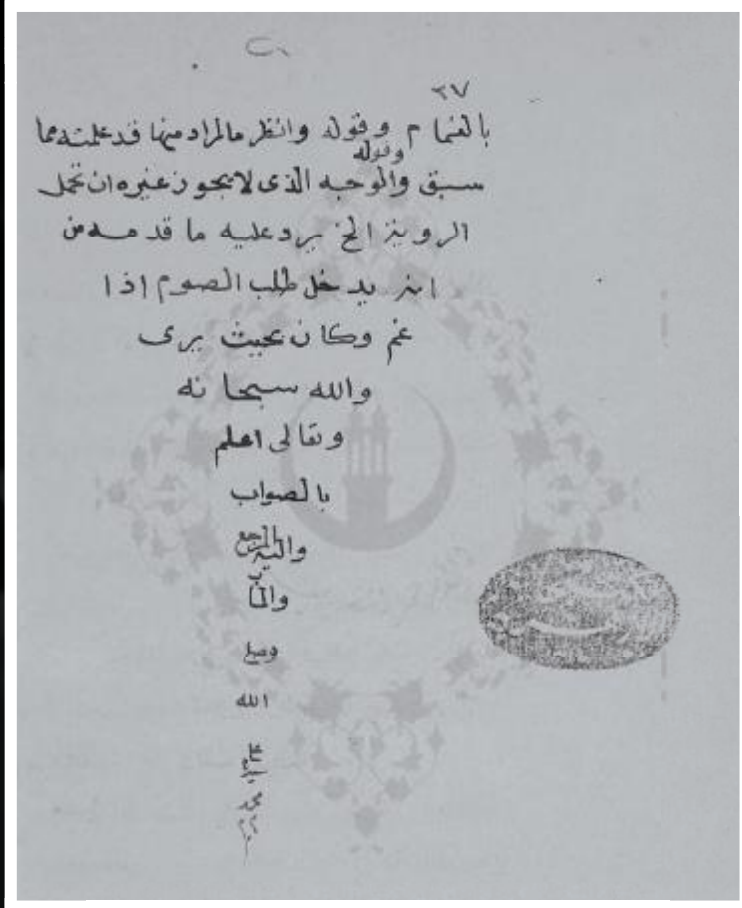 ٢٧
بالغمام وقوله وانظر ما المراد منها قد علمته مما
سبق وقوله والوجه الذى لا يجوز غيره ان تحمل
الروية الخ يرد عليه ما قدمه من
انه يدخل طلب الصوم اذا
غم وكان بحيث يرى
والله سبحانه
وتعالى اعلم
بالصواب
واليه المرجع
والمآب
وصلى
الله
على سيدنا
محمد